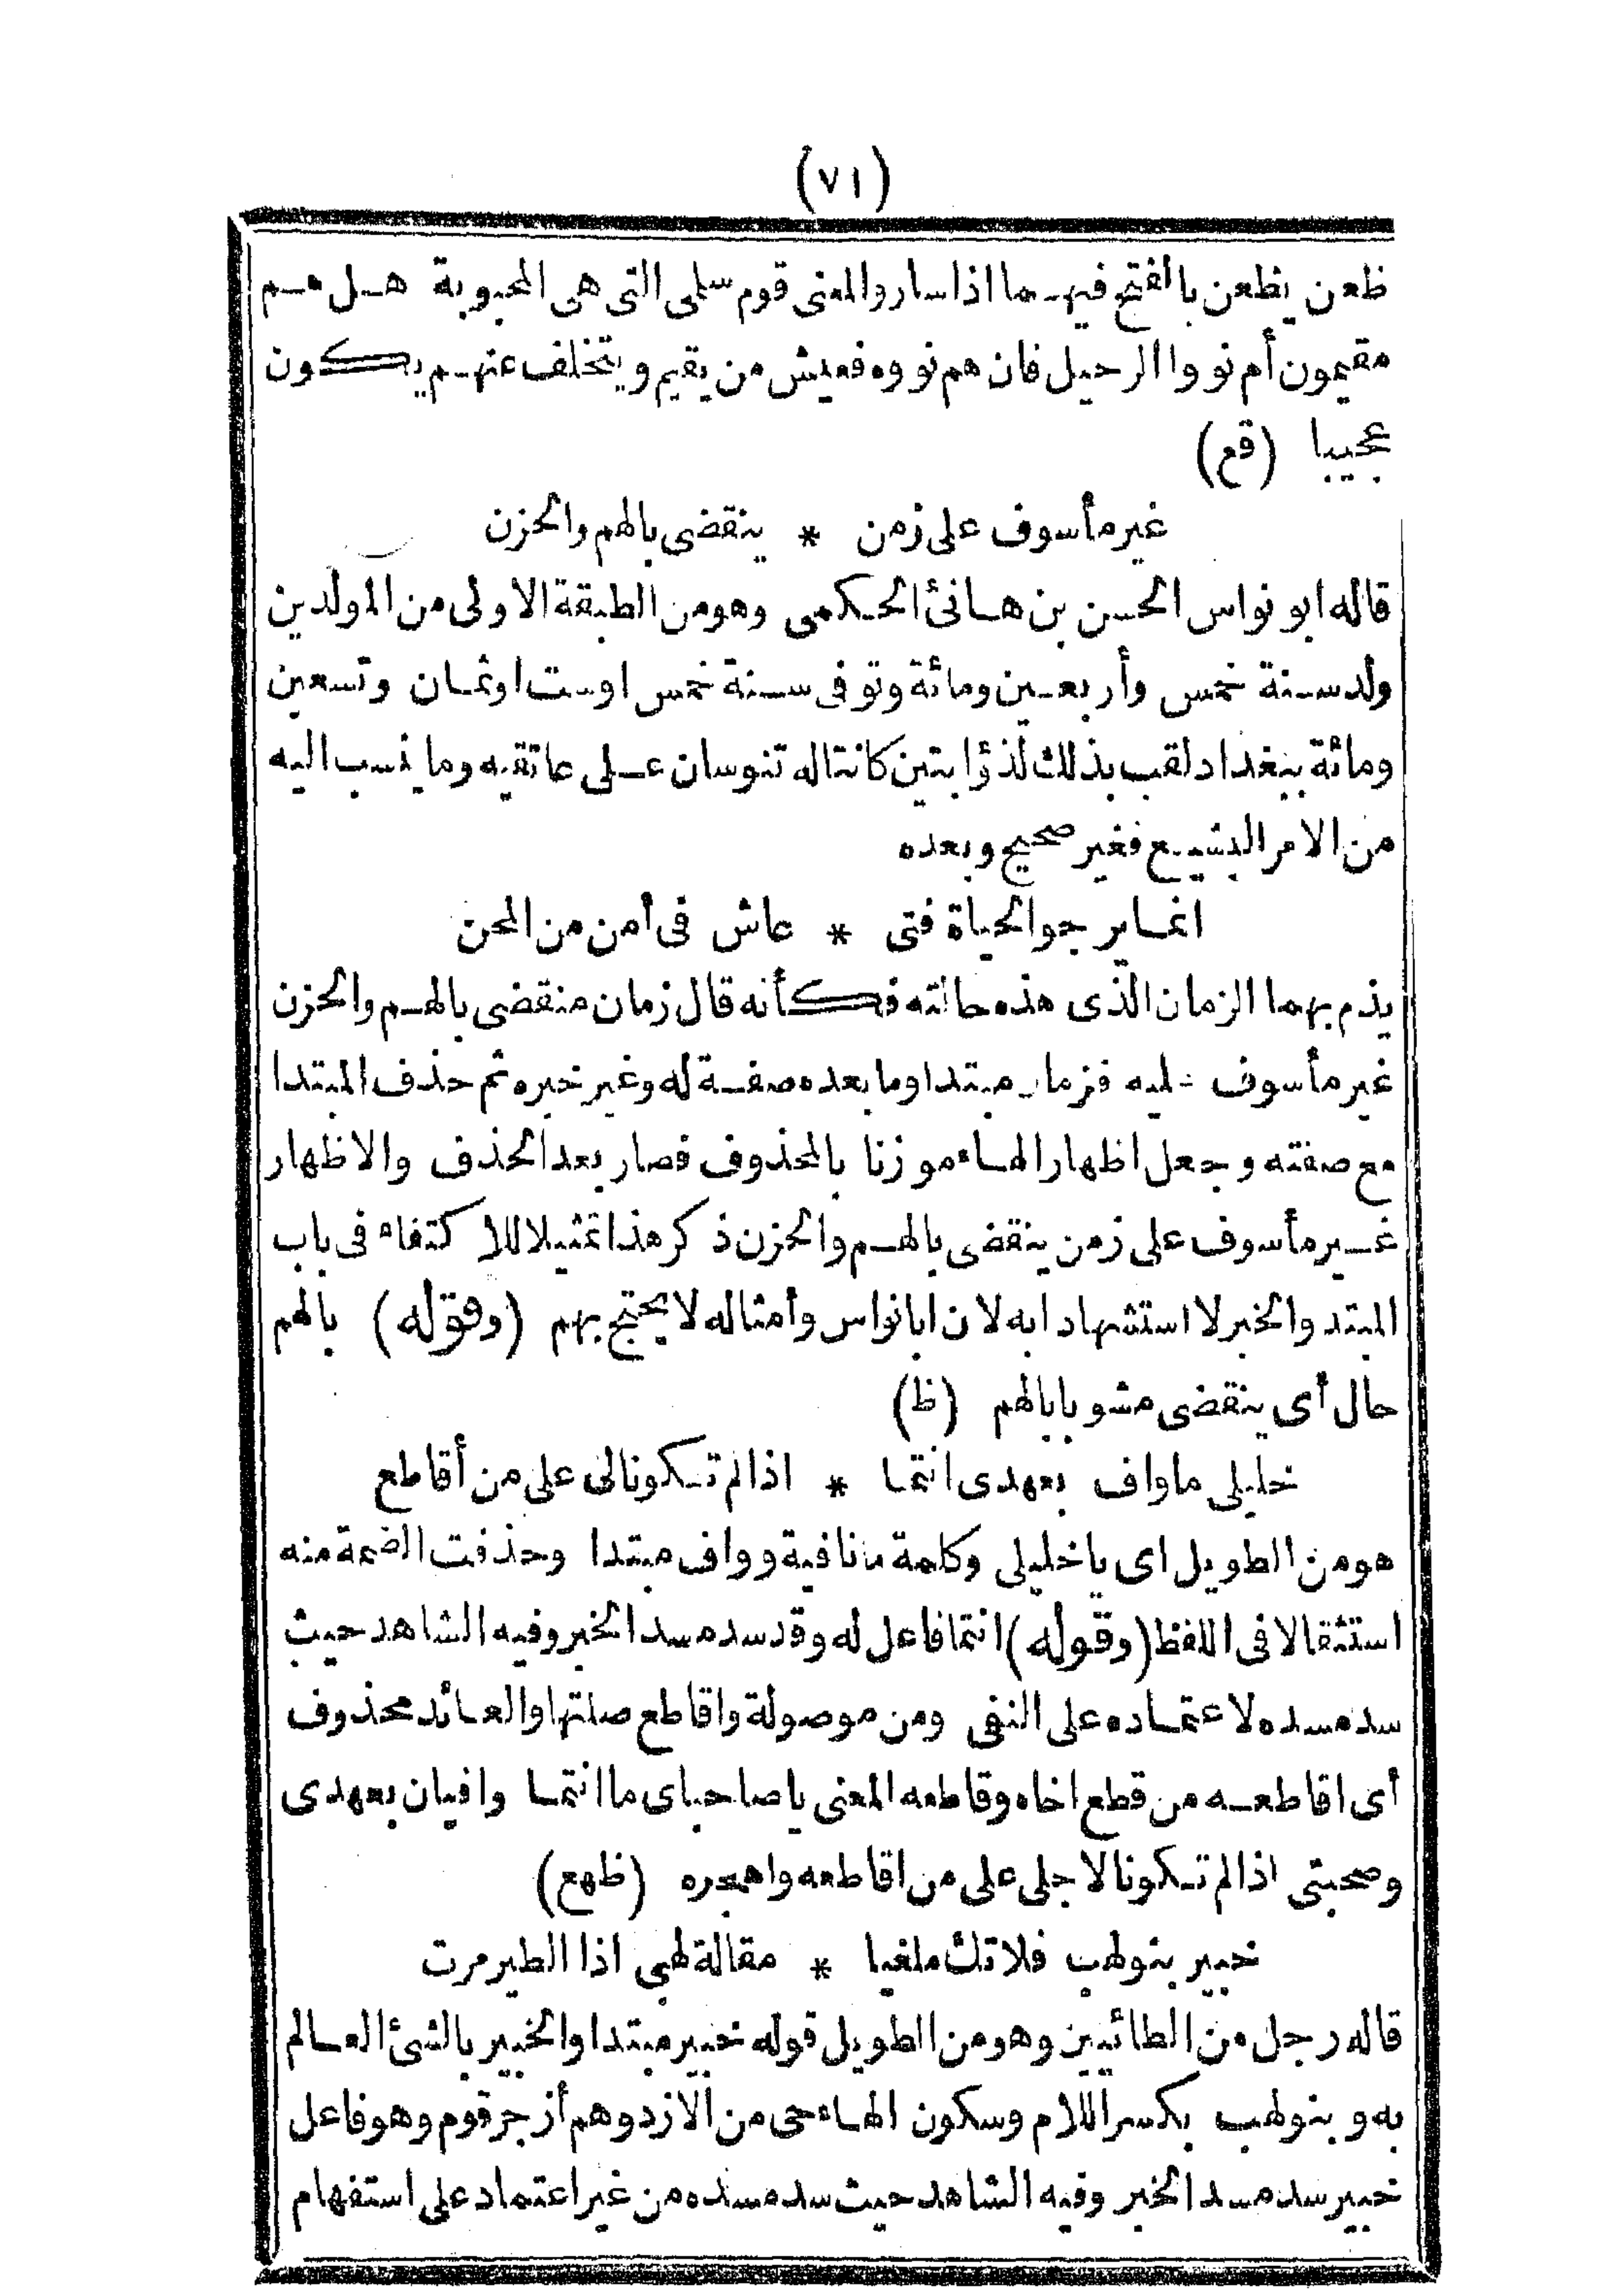 (٧١)
ظعن يظعن بالفتح فيهما اذا سار والمعنى قوم سلمى التى هى المحبوبة هل هم
مقيمون أم نووا الرحيل فان هم نووه فعيش من يقيم ويتخلف عنهم يكون
عجيبا (قع)
غير مأسوف على زمن * ينقضى بالهم والحزن
قاله ابو نواس الحسن بن هانئ الحكمى وهو من الطبقة الاولى من المولدين
ولد سنة خمس وأربعين ومائة وتوفى سنة خمس او ست او ثمان وتسعين
ومائة ببغداد لقب بذلك لذؤابتين كانتا له تنوسان على عاتقيه وما ينسب اليه
من الامر البشيع فغير صحيح وبعده
انما يرجو الحياة فتى * عاش فى أمن من المحن
يذم بهما الزمان الذى هذه حالته فكأنه قال زمان منقضى بالهم والحزن
غير مأسوف عليه فزمان مبتدا وما بعده صفة له وغير خبره ثم حذف المبتدا
مع صفته وجعل اظهار الهاء موزنا بالمحذوف فصار بعد الحذف والاظهار
غير مأسوف على زمن ينقضى بالهم والحزن ذكر هذا تمثيلا للاكتفاء فى باب
المبتد والخبر لا استشهادا به لان ابا نواس وأمثاله لا يحتج بهم (وقوله) بالهم
حال أى ينقضى مشوبا بالهم (ظ)
خليلى ما واف بعهدى انتما * اذا لم تكونا لى على من أقاطع
هو من الطويل اى يا خليلى وكلمة ما نافية وواف مبتدا وحذفت الضمة منه
استثقالا فى اللفظ (وقوله) انتما فاعل له وقد سد مسد الخبر وفيه الشاهد حيث
سد مسده لاعتماده على النفى ومن موصولة واقاطع صلتها والعائد محذوف
أى اقاطعه من قطع اخاه وقاطعه المعنى يا صاحباى ما انتما وافيان بعهدى
وصحبتى اذا لم تكونا لاجلى على من اقاطعه واهجره (ظهع)
خبير بنو لهب فلا تك ملغيا * مقالة لهبى اذا الطير مرت
قاله رجل من الطائيين وهو من الطويل قوله خبير مبتدا والخبير بالشئ العالم
به وبنو لهب بكسر اللام وسكون الهاء حى من الازد وهم أزجر قوم وهو فاعل
خبير سد مسد الخبر وفيه الشاهد حيث سد مسده من غير اعتماد على استفهام